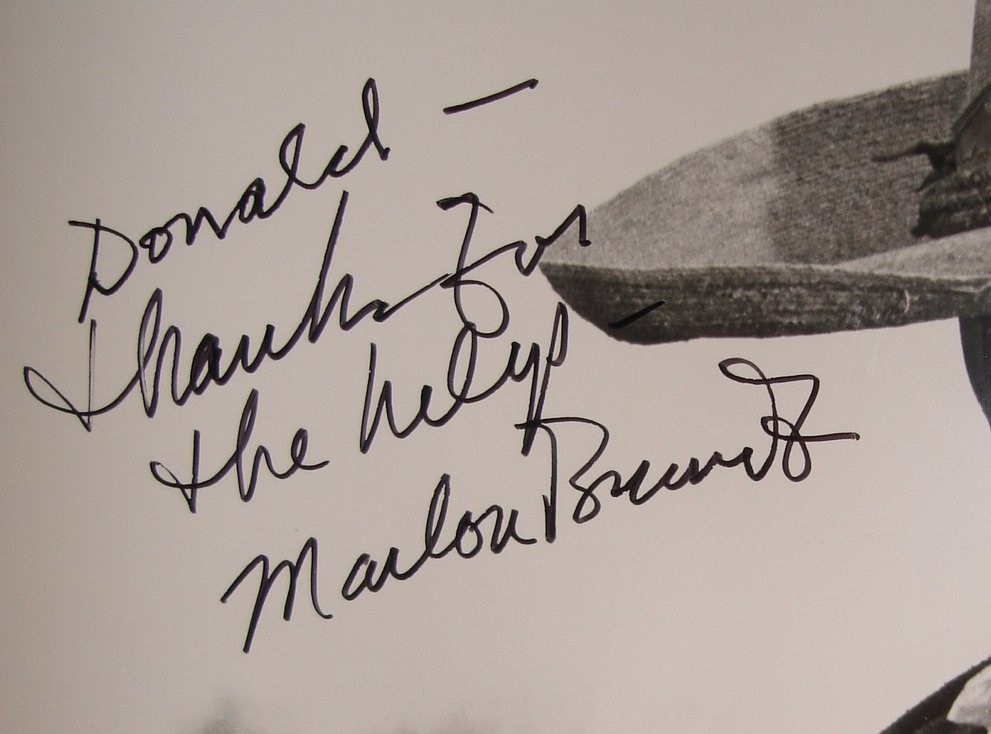 Donald —
Thanks for
the help —
Marlon Brando